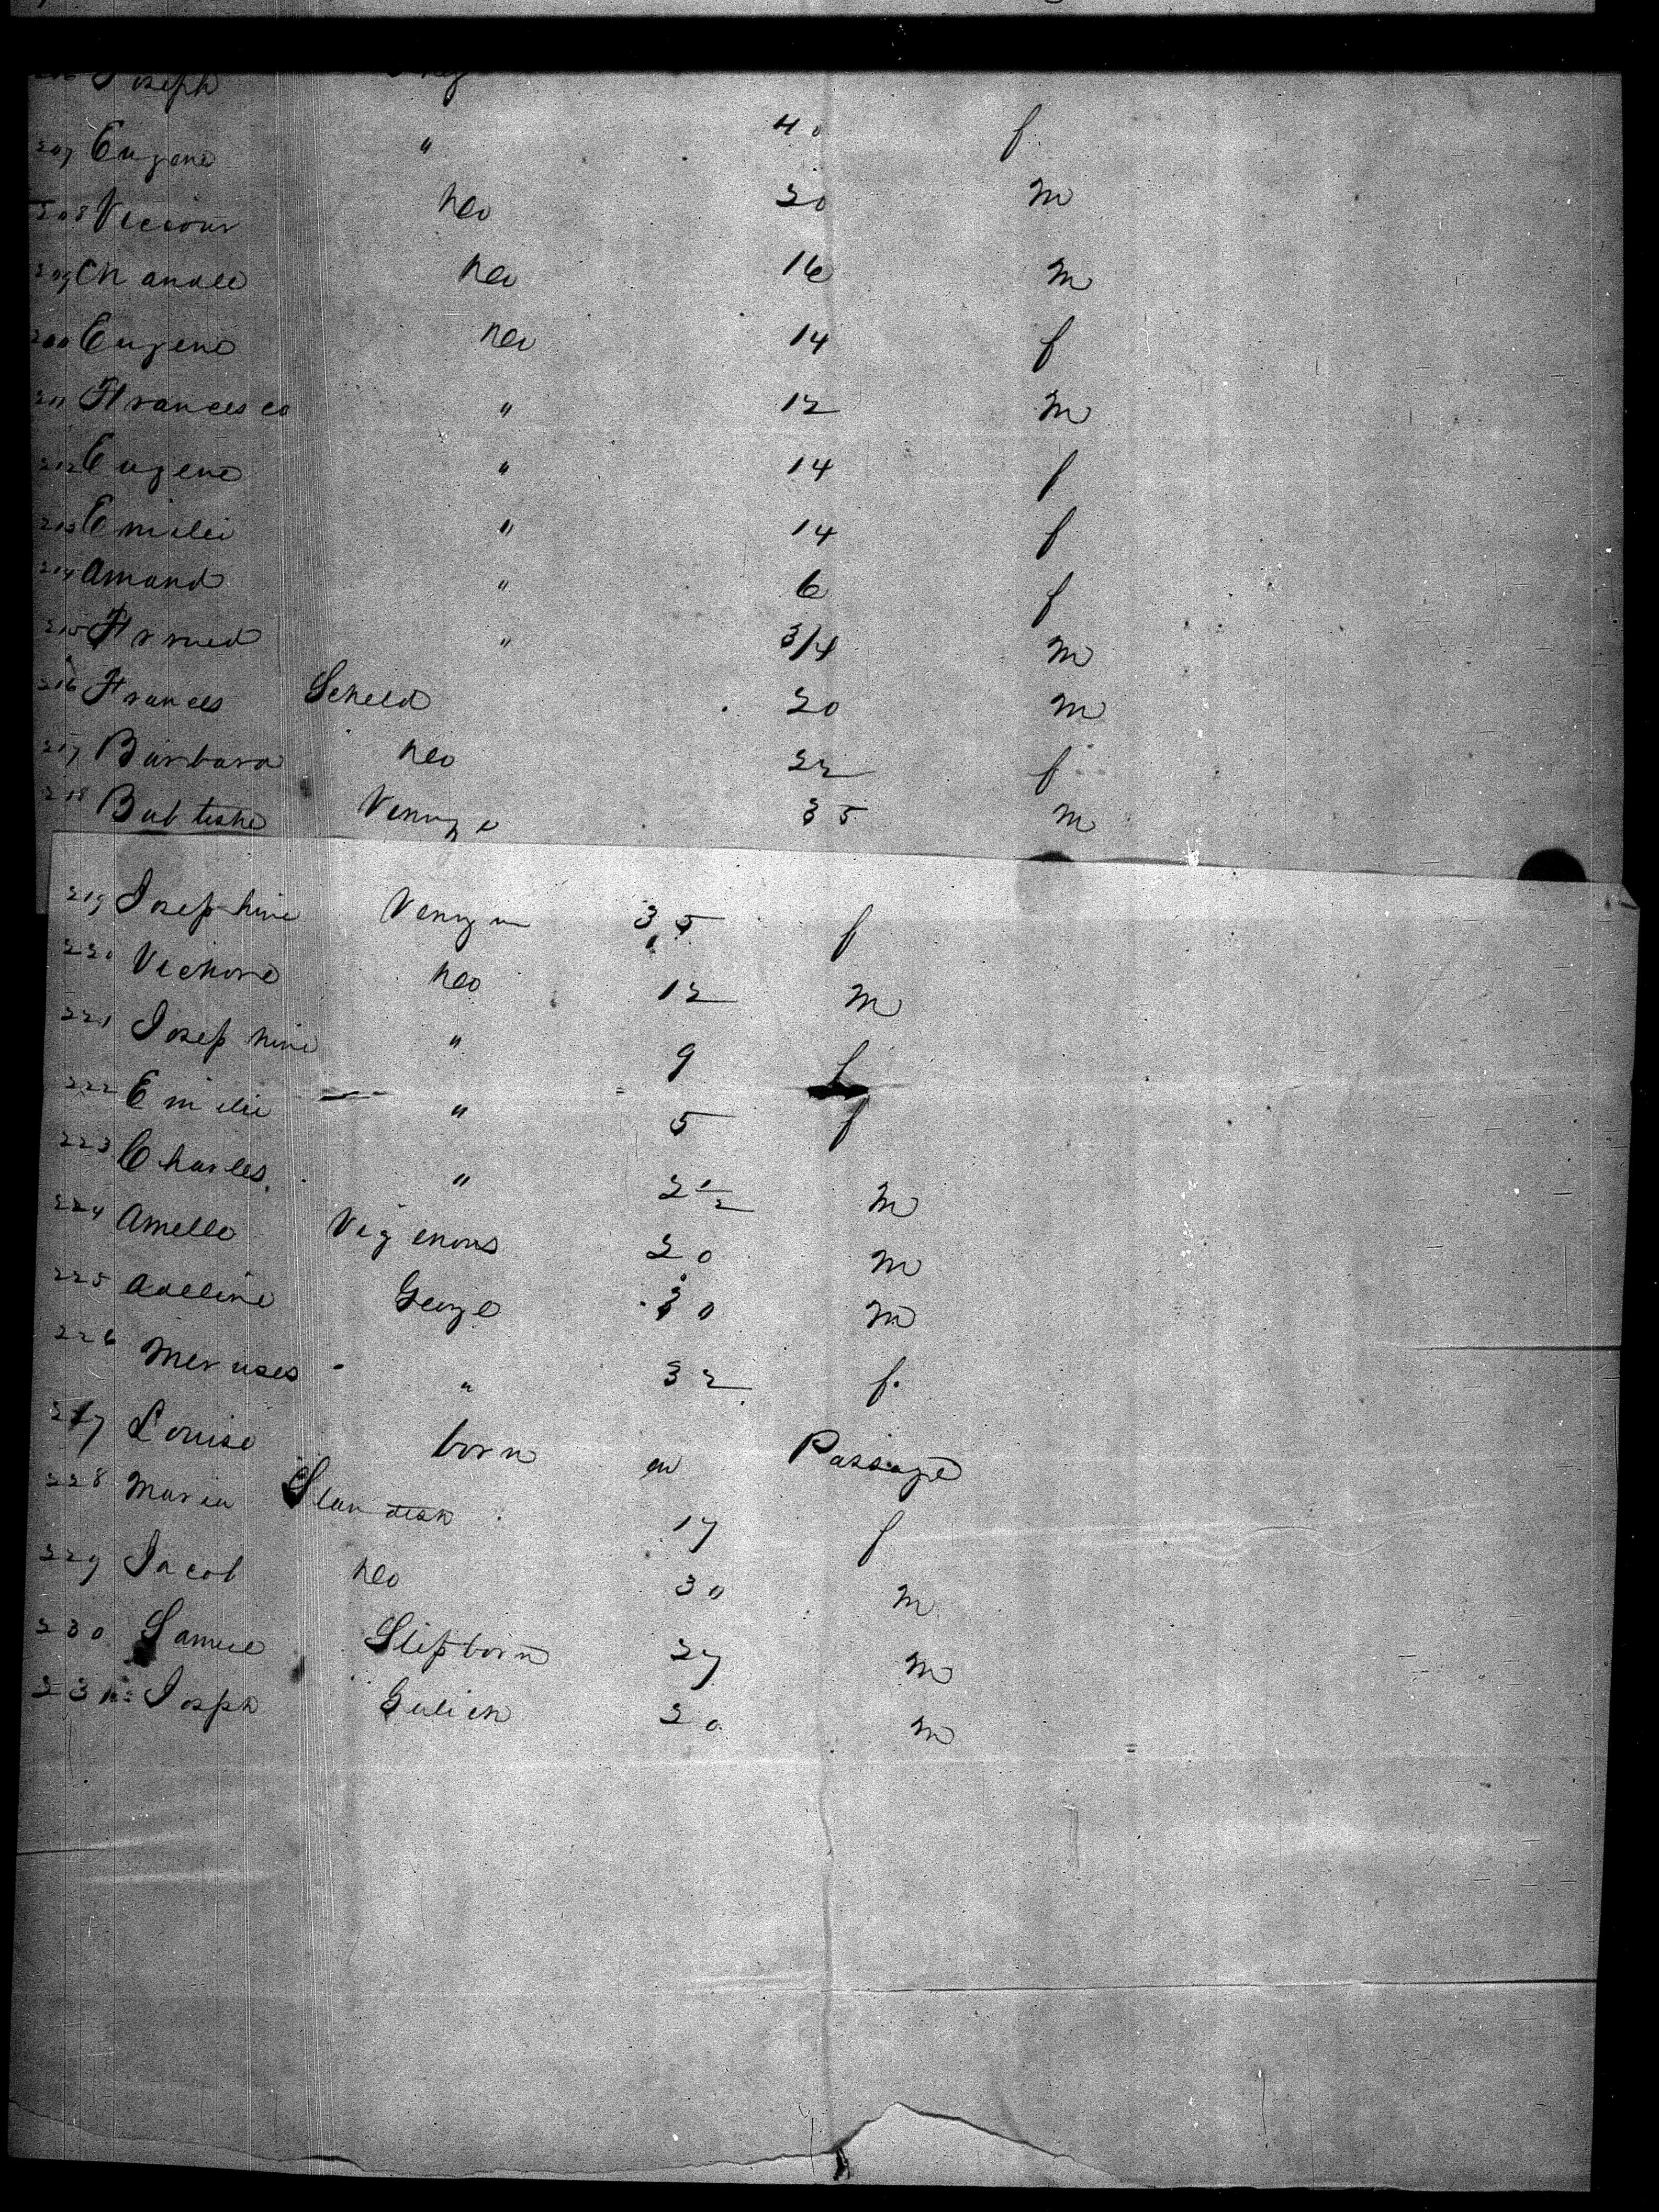 206 Joseph
207 Eugene " 40 f
208 Victour neo 20 m
209 neo 16 m
200 Eugene neo 14 f
211 Francesco " 12 m
212 Eugene " 14 f
213 Emilei " 14 f
214 Amand " 6 f
215 " 3/4 m
216 Frances Scheld 20 m
217 Barbara neo 22 f
218 Babtishe 35 m
219 Josephine 35 f
220 Vichore neo 12 m
221 Josephine " 9 f
222 Emilie " 5 f
223 Charles. " 2 1/2 m
224 Amelle 20 m
225 Adeline George 30 m
226 " 32 f.
227 Louise born on Passage
228 Maria 17 f
229 Jacob neo 30 m
230 Samuel Slipborn 27 m
231 Joseph Gulich 20 m